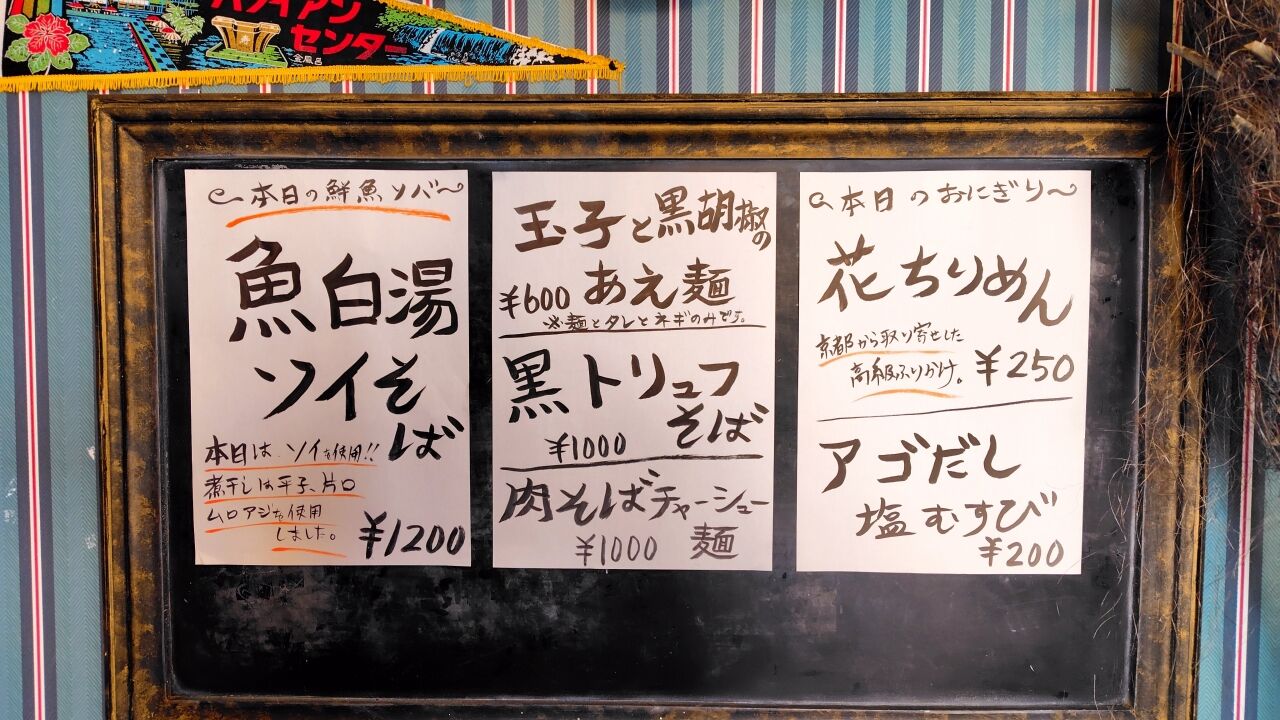 ハワイアン
センター
~本日の鮮魚ソバ~
魚白湯
ソイそ
ば
本日は、ソイを使用!!
煮干しは平子、片口
ムロアジを使用
しました。
¥1200
玉子と黒胡椒の
¥600 あえ麺
※麺とタレとネギのみです。
黒トリュフ
そば
¥1000
肉そばチャーシュー
¥1000 麺
~本日のおにぎり~
花ちりめん
京都から取り寄せした
高級ふりかけ。 ¥250
アゴだし
塩むすび
¥200